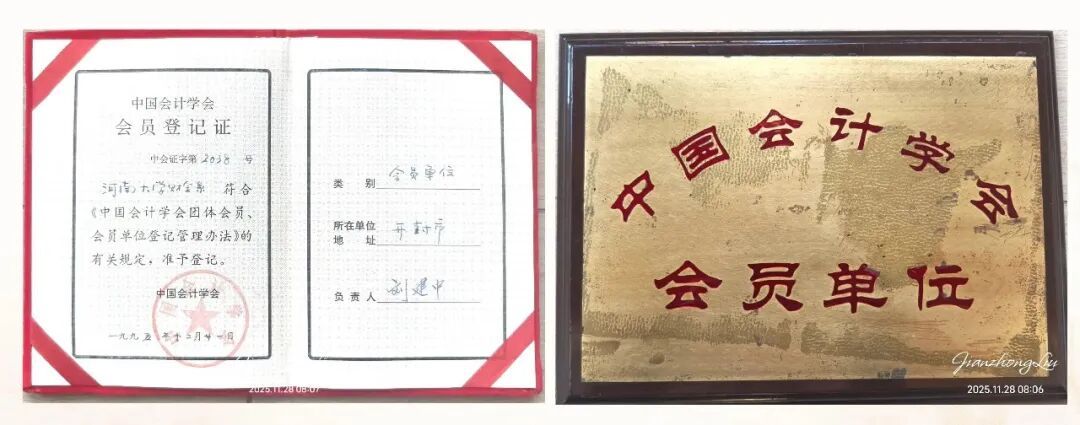 中国会计学会
会员登记证
中会证字第2038号
河南大学财会系 符合
《中国会计学会团体会员、
会员单位登记管理办法》的
有关规定，准予登记。
中国会计学会
一九九五年十二月廿一日
类 别 会员单位
所在单位
地 址 开封市
负责人 刘建中
2025.11.28 08:07
中国会计学会
会员单位
JianzhongLiu
2025.11.28 08:06